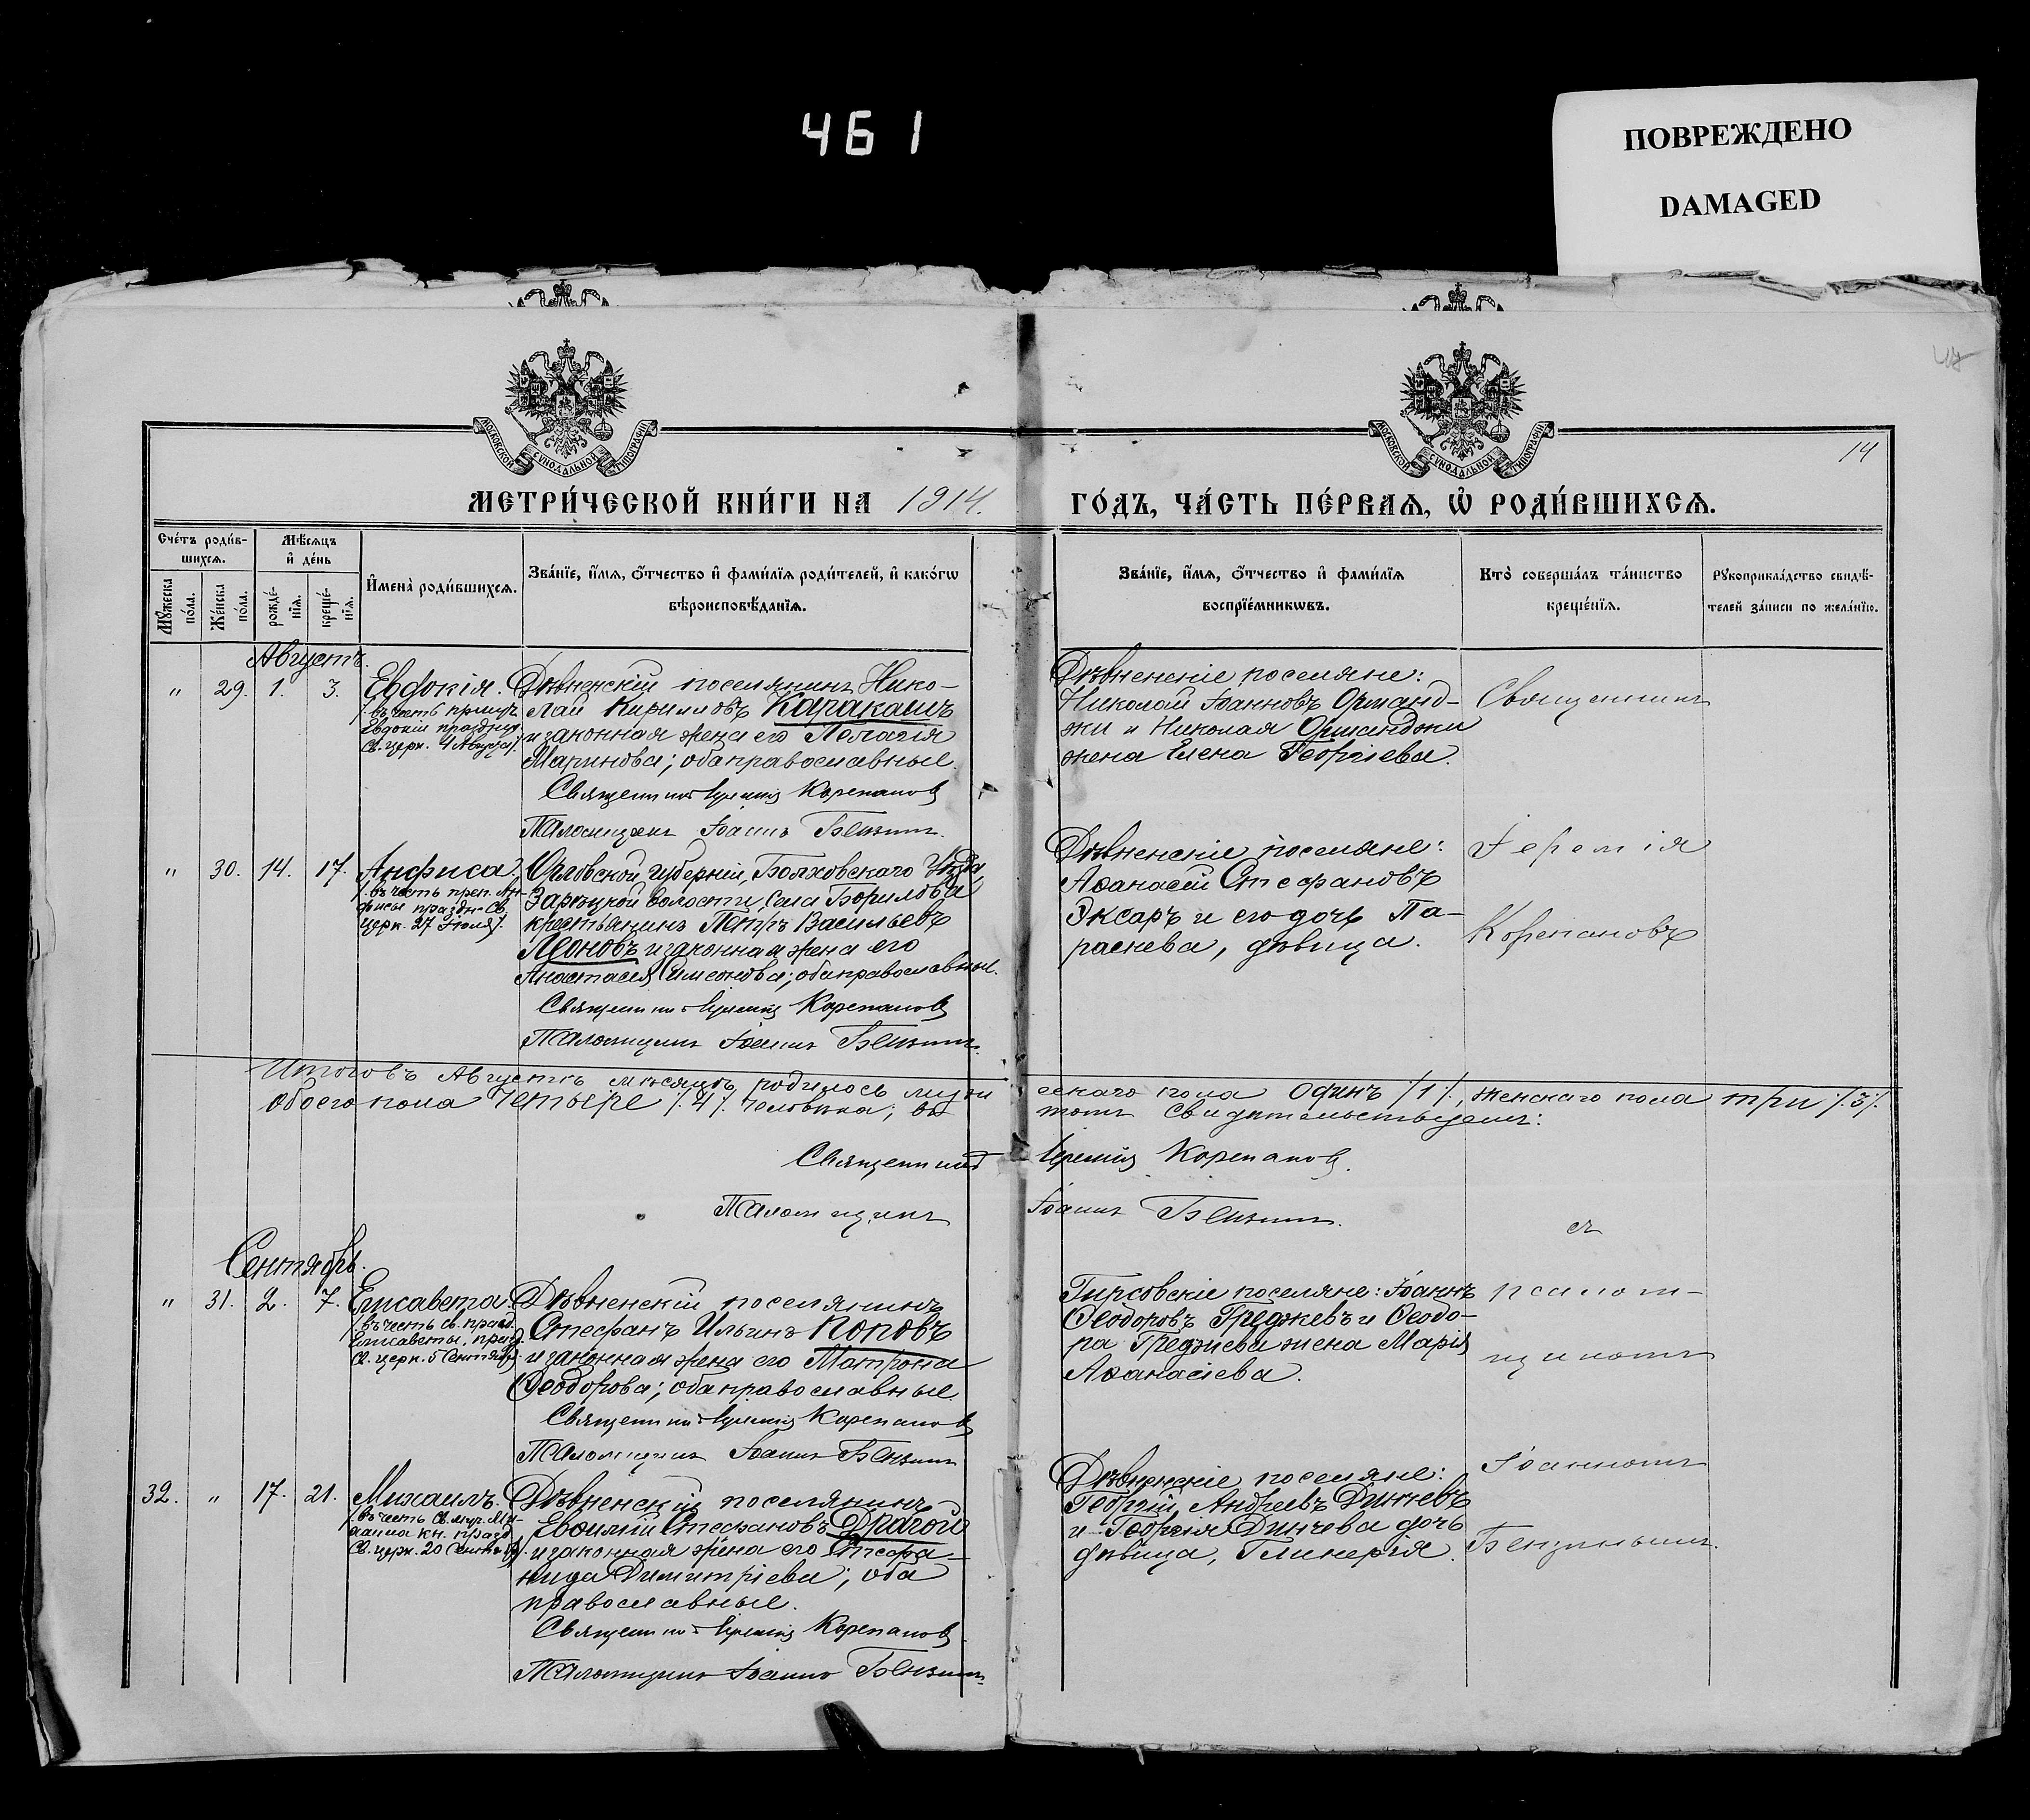 461
ПОВРЕЖДЕНО
DAMAGED
МОСКОВСКОЙ СѴНОДАЛЬНОЙ ТИПОГРАФІИ
МОСКОВСКОЙ СѴНОДАЛЬНОЙ ТИПОГРАФІИ
14
МЕТРИ́ЧЕСКОЙ КНИ́ГИ НА 1914.
ГО́ДЪ, ЧА́СТЬ ПЕ́РВАѦ, Ѡ҆ РОДИ́ВШИХСѦ.
Сче́тъ роди́в-
шихсѧ.
Мѣ́сѧцъ
и҆ де́нь
И҆мена̀ роди́вшихсѧ.
Зва́нїе, и҆́мѧ, ѻ҆́тчество и҆ фами́лїѧ роди́телей, и҆ како́гѡ
вѣроисповѣ́данїѧ.
Мꙋ́жеска
по́ла.
Же́нска
по́ла.
рожде́-
нїѧ.
креще́-
нїѧ.
Зва́нїе, и҆́мѧ, ѻ҆́тчество и҆ фами́лїѧ
воспрїе́мникѡвъ.
Кто̀ соверша́лъ та́инство
креще́нїѧ.
Рꙋкоприкла́дство свидѣ́-
телей за́писи по жела́нїю.
Августъ.
" 29. 1. 3. Евдокія.
/въ честь прмуч.
Евдокіи праздн.
Св. церк. 4 Августа/.
Дѣвненскій поселянинъ Нико-
лай Кирилловъ Каракашъ
и законная жена его Пелагія
Маринова; оба православные.
Священникъ Іеремія Корепановъ
Псаломщикъ Іоаннъ Бензинъ.
Дѣвненскіе поселяне:
Николай Іоанновъ Орманд-
жи и Николая Орманджи
жена Елена Георгіева.
Священникъ
" 30. 14. 17. Анфиса.
/въ честь преп. Ан-
фисы праздн. Св.
церк. 27 Іюля/.
Орловской губерніи, Болховскаго Уѣзда,
волости, села Борилова
крестьянинъ Петръ Васильевъ
Леоновъ и законная жена его
Анастасія Симеонова; оба православные.
Священникъ Іеремія Корепановъ
Псаломщикъ Іоаннъ Бензинъ.
Дѣвненскіе поселяне:
Аѳанасій Стефановъ
Эксаръ и его дочь Па-
раскева, дѣвица.
Іеремія
Корепановъ
Итого въ Августѣ мѣсяцѣ родилось муже-
скаго пола Одинъ /1/, женскаго пола три /3/.
обоего пола четыре /4/ человѣка; въ
томъ свидѣтельствуемъ:
Священникъ Іеремія Корепановъ.
Псаломщикъ Іоаннъ Бензинъ.
съ
Сентябрь.
" 31. 2. 7. Елисавета.
/въ честь св. прав.
Елисаветы, празд.
Св. церк. 5 Сентября/.
Дѣвненскій поселянинъ
Стефанъ Ильинъ Поповъ
и законная жена его Матрона
Ѳеодорова; оба православные
Священникъ Іеремія Корепановъ
Псаломщикъ Іоаннъ Бензинъ
Гирсовскіе поселяне: Іоаннъ
Ѳеодоровъ Греджевъ и Ѳеодо-
ра Греджева жена Марія
Аѳанасіева.
псалом-
щикомъ
32. " 17. 21. Михаилъ.
/въ честь Св. муч. Ми-
хаила кн. празд.
Св. церк. 20 Сентяб./.
Дѣвненскій поселянинъ
Евѳимій Стефановъ Драгой
и законная жена его Стефа-
нида Димитріева; оба
православные.
Священникъ Іеремія Корепановъ
Псаломщикъ Іоаннъ Бензинъ
Дѣвненскіе поселяне:
Георгій Андреевъ Динчевъ
и Георгія Динчева дочь
дѣвица, Гликерія.
Іоанномъ
Бензинымъ.